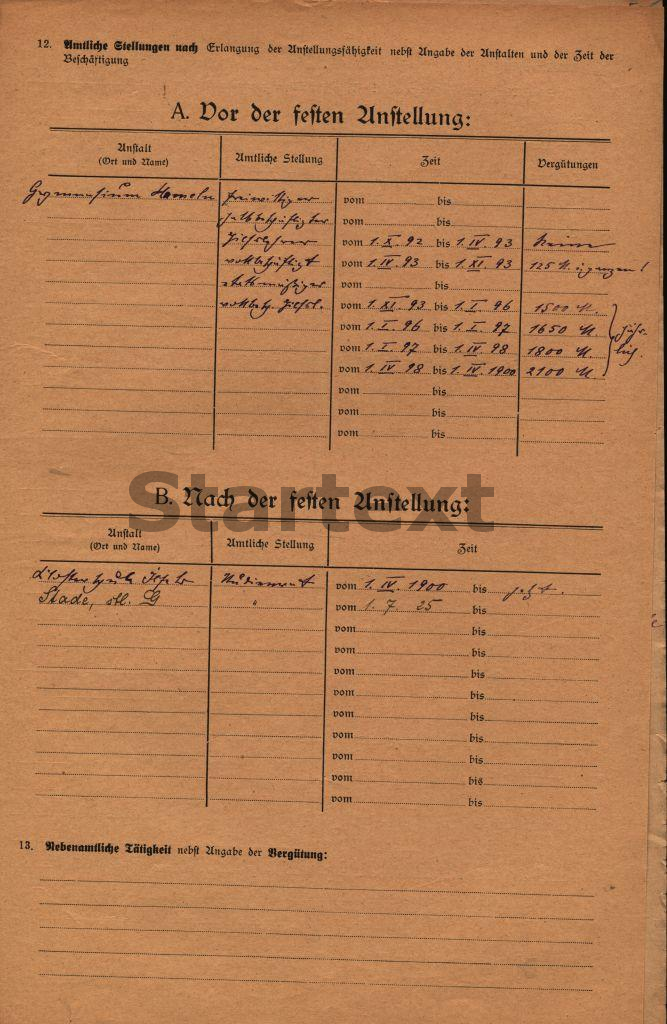 12. Amtliche Stellungen nach Erlangung der Anstellungsfähigkeit nebst Angabe der Anstalten und der Zeit der
Beschäftigung
A. Vor der festen Anstellung:
Anstalt
(Ort und Name)
Amtliche Stellung
Zeit
Vergütungen
Gymnasium Hameln freiwilliger vom bis
halbbeschäftigter vom bis
Hilfslehrer vom 1. X. 92 bis 1. IV. 93 keine
vollbeschäftigt vom 1. IV. 93 bis 1. XI. 93 125 M.
etatsmäßiger vom bis
vollbesch. Hilfsl. vom 1. XI. 93 bis 1. I. 96 1500 M.
vom 1. I. 96 bis 1. I. 97 1650 M jähr-
vom 1. I. 97 bis 1. IV. 98 1800 M. lich.
vom 1. IV. 98 bis 1. IV. 1900 2100 M.
vom bis
vom bis
vom bis
Startext
B. Nach der festen Anstellung:
Anstalt
(Ort und Name)
Amtliche Stellung
Zeit
Klosterschule Ilfeld Studienrat vom 1. IV. 1900 bis jetzt.
Stade, stl. G " vom 1. 7 25 bis
vom bis
vom bis
vom bis
vom bis
vom bis
vom bis
vom bis
vom bis
vom bis
13. Nebenamtliche Tätigkeit nebst Angabe der Vergütung: